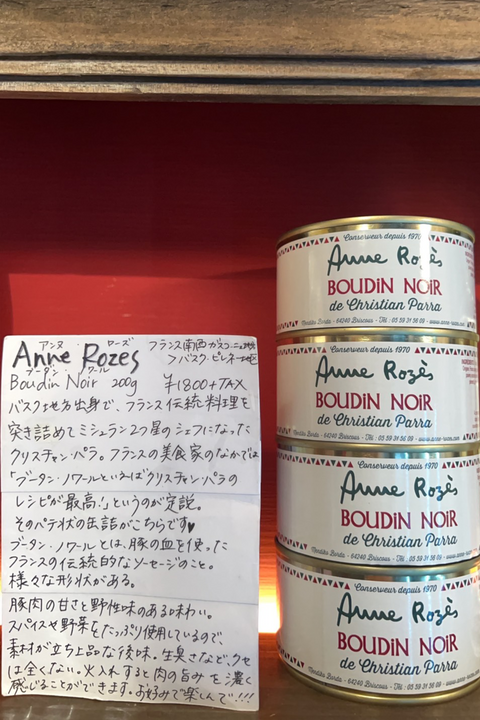 アンヌ ローズ
Anne Rozes
フランス南西ガスコーニュ地方
>バスク・ピレネー地区
ブーダン ノワール
Boudin Noir 200g ¥1800+TAX
バスク地方出身で、フランス伝統料理を
突き詰めてミシュラン2つ星のシェフになった
クリスチャン・パラ。フランスの美食家のなかでは
「ブータン・ノワールといえばクリスチャン・パラの
レシピが最高!」というのが定説。
そのパテ状の缶詰がこちらです♥
ブータン・ノワールとは、豚の血を使った
フランスの伝統的なソーセージのこと。
様々な形状がある。
豚肉の甘さと野性味のある味わい。
スパイスや野菜をたっぷり使用しているので
素材が立ち上品な後味。生臭さなど、クセ
は全くない。火入れすると肉の旨みを濃く
感じることができます。お好みで楽しんで!!!
Conserveur depuis 1970
Anne Rozès
BOUDIN NOIR
de Christian Parra
Mendito Borda - 64240 Briscous - Tél : 05 59 31 58 09 - www.anne-rozes.com
Conserveur depuis 1970
Anne Rozès
BOUDIN NOIR
de Christian Parra
Mendito Borda - 64240 Briscous - Tél : 05 59 31 58 09 - www.anne-rozes.com
Conserveur depuis 1970
Anne Rozès
BOUDIN NOIR
de Christian Parra
Mendito Borda - 64240 Briscous - Tél : 05 59 31 58 09 - www.anne-rozes.com
Conserveur depuis 1970
Anne Rozès
BOUDIN NOIR
de Christian Parra
Mendito Borda - 64240 Briscous - Tél : 05 59 31 58 09 - www.anne-rozes.com